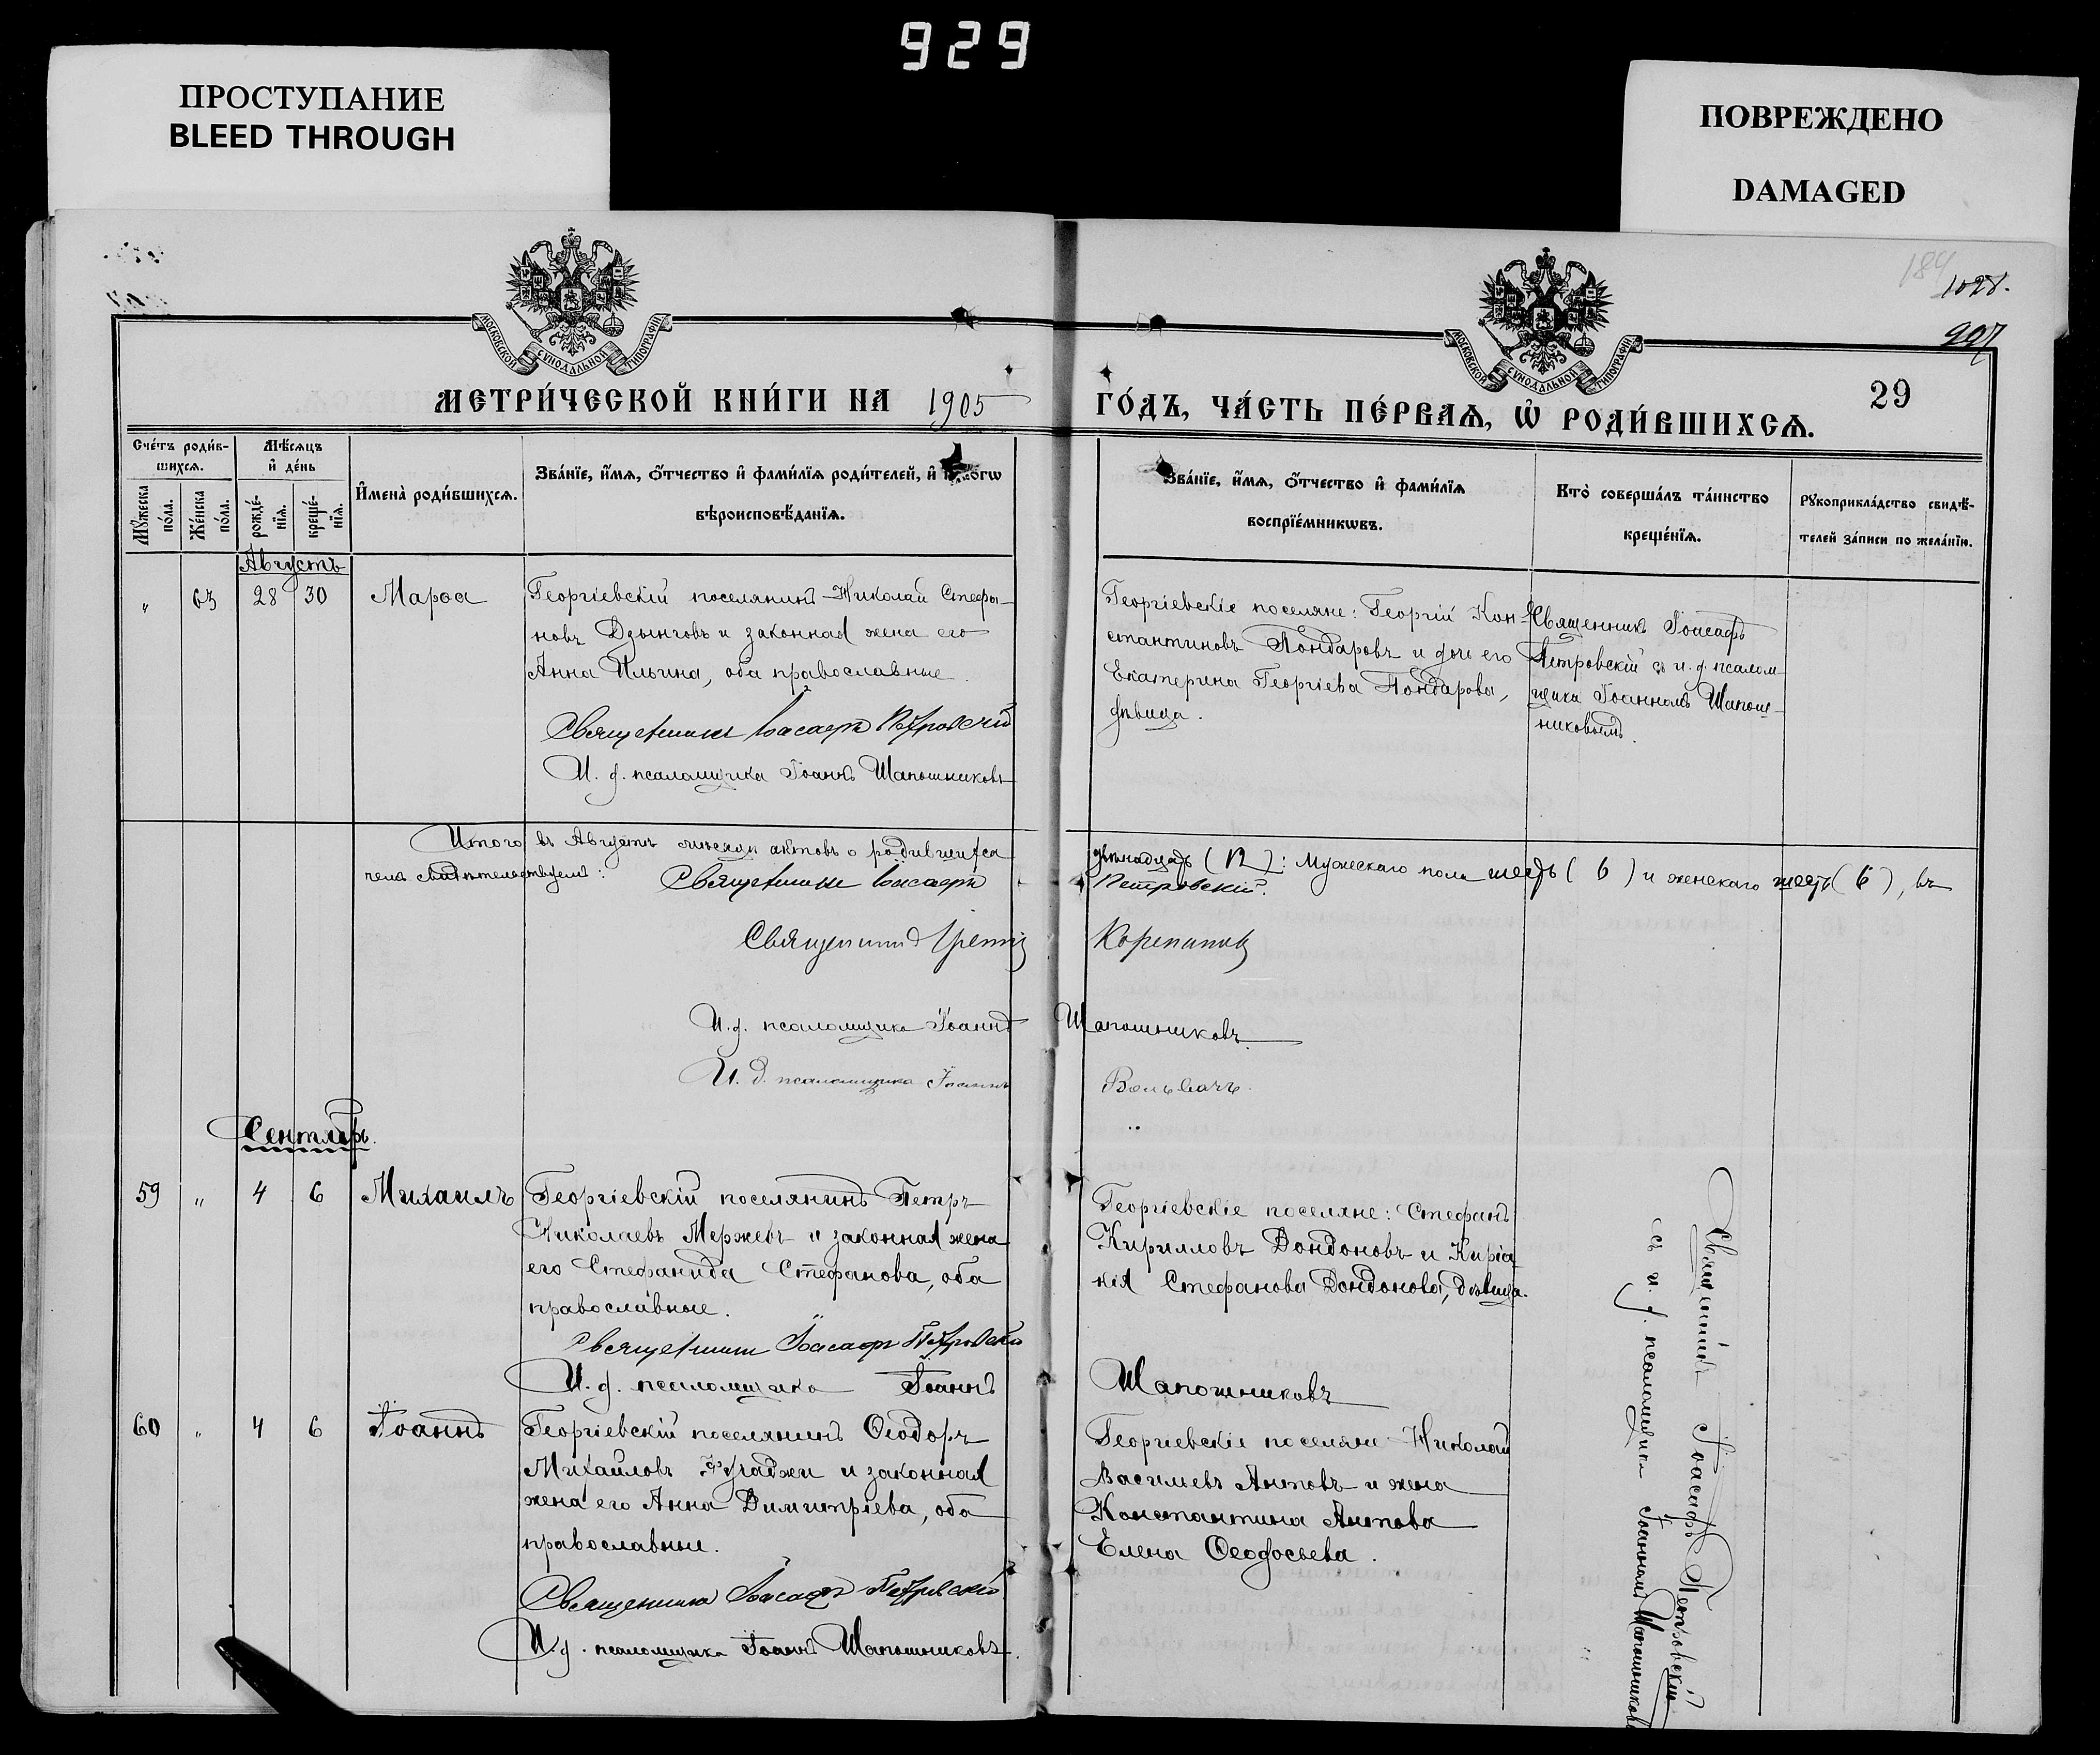 929
ПРОСТУПАНИЕ
BLEED THROUGH
ПОВРЕЖДЕНО
DAMAGED
184
1028.
997
МОСКОВСКОЙ СУНОДАЛЬНОЙ ТИПОГРАФІИ
МОСКОВСКОЙ СУНОДАЛЬНОЙ ТИПОГРАФІИ
МЕТРИ́ЧЕСКОЙ КНИ́ГИ НА 1905 ГО́ДЪ, ЧА́СТЬ ПЕ́РВАѦ, Ѡ҆ РОДИ́ВШИХСѦ.
29
Сче́тъ роди́в-
шихсѧ.
Мѣ́сѧцъ
и҆ де́нь
Мꙋ́жеска
по́ла.
Же́нска
по́ла.
рожде́-
нїѧ.
креще́-
нїѧ.
И҆мена̀ роди́вшихсѧ.
Зва́нїе, и҆́мѧ, ѻ҆́тчество и҆ фами́лїѧ роди́телей, и҆
вѣроисповѣ́данїѧ.
Зва́нїе, и҆́мѧ, ѻ҆́тчество и҆ фами́лїѧ
воспрїе́мникѡвъ.
Кто̀ соверша́лъ та́инство
креще́нїѧ.
Рꙋкоприкла́дство свидѣ́-
телей за́писи по жела́нїю.
Августъ
„ 63 28 30 Марѳа
Георгіевскій поселянинъ Николай Стефа-
новъ Дзынговъ и законная жена его
Анна Ильина, оба православные.
Священникъ Іоасафъ Петровскій
И. д. псаломщика Іоаннъ Шапошниковъ
Георгіевскіе поселяне: Георгій Кон-
стантиновъ Пондаровъ и дочь его
Екатерина Георгіева Пондарова,
дѣвица.
Священникъ Іоасафъ
Петровскій съ и. д. псалом-
щика Іоанномъ Шапош-
никовымъ.
Итого въ Августѣ мѣсяцѣ актовъ о родившихся двѣнадцать (12): Мужескаго пола шесть (6) и женскаго шесть (6), въ
чемъ свидѣтельствуемъ: Священникъ Іоасафъ Петровскій.
Священникъ Корепановъ
И. д. псаломщика Іоаннъ Шапошниковъ.
И. д. псаломщика Іоаннъ Вольвачъ.
Сентябрь.
59 „ 4 6 Михаилъ
Георгіевскій поселянинъ Петръ
Николаевъ Мержевъ и законная жена
его Стефанида Стефанова, оба
православные.
Священникъ Іоасафъ Петровскій
И. д. псаломщика Іоаннъ Шапошниковъ
Георгіевскіе поселяне: Стефанъ
Кирилловъ Дондоновъ и Киріа
кія Стефанова Дондонова, дѣвица.
60 „ 4 6 Іоаннъ
Георгіевскій поселянинъ Ѳеодоръ
Михайловъ Фучаджи и законная
жена его Анна Димитріева, оба
православные.
Священникъ Іоасафъ Петровскій
И. д. псаломщика Іоаннъ Шапошниковъ.
Георгіевскіе поселяне Николай
Васильевъ Антовъ и жена
Константина Антова
Елена Ѳеодосьева.
Священникъ Іоасафъ Петровскій
съ и. д. псаломщика Іоанномъ Шапошниковымъ